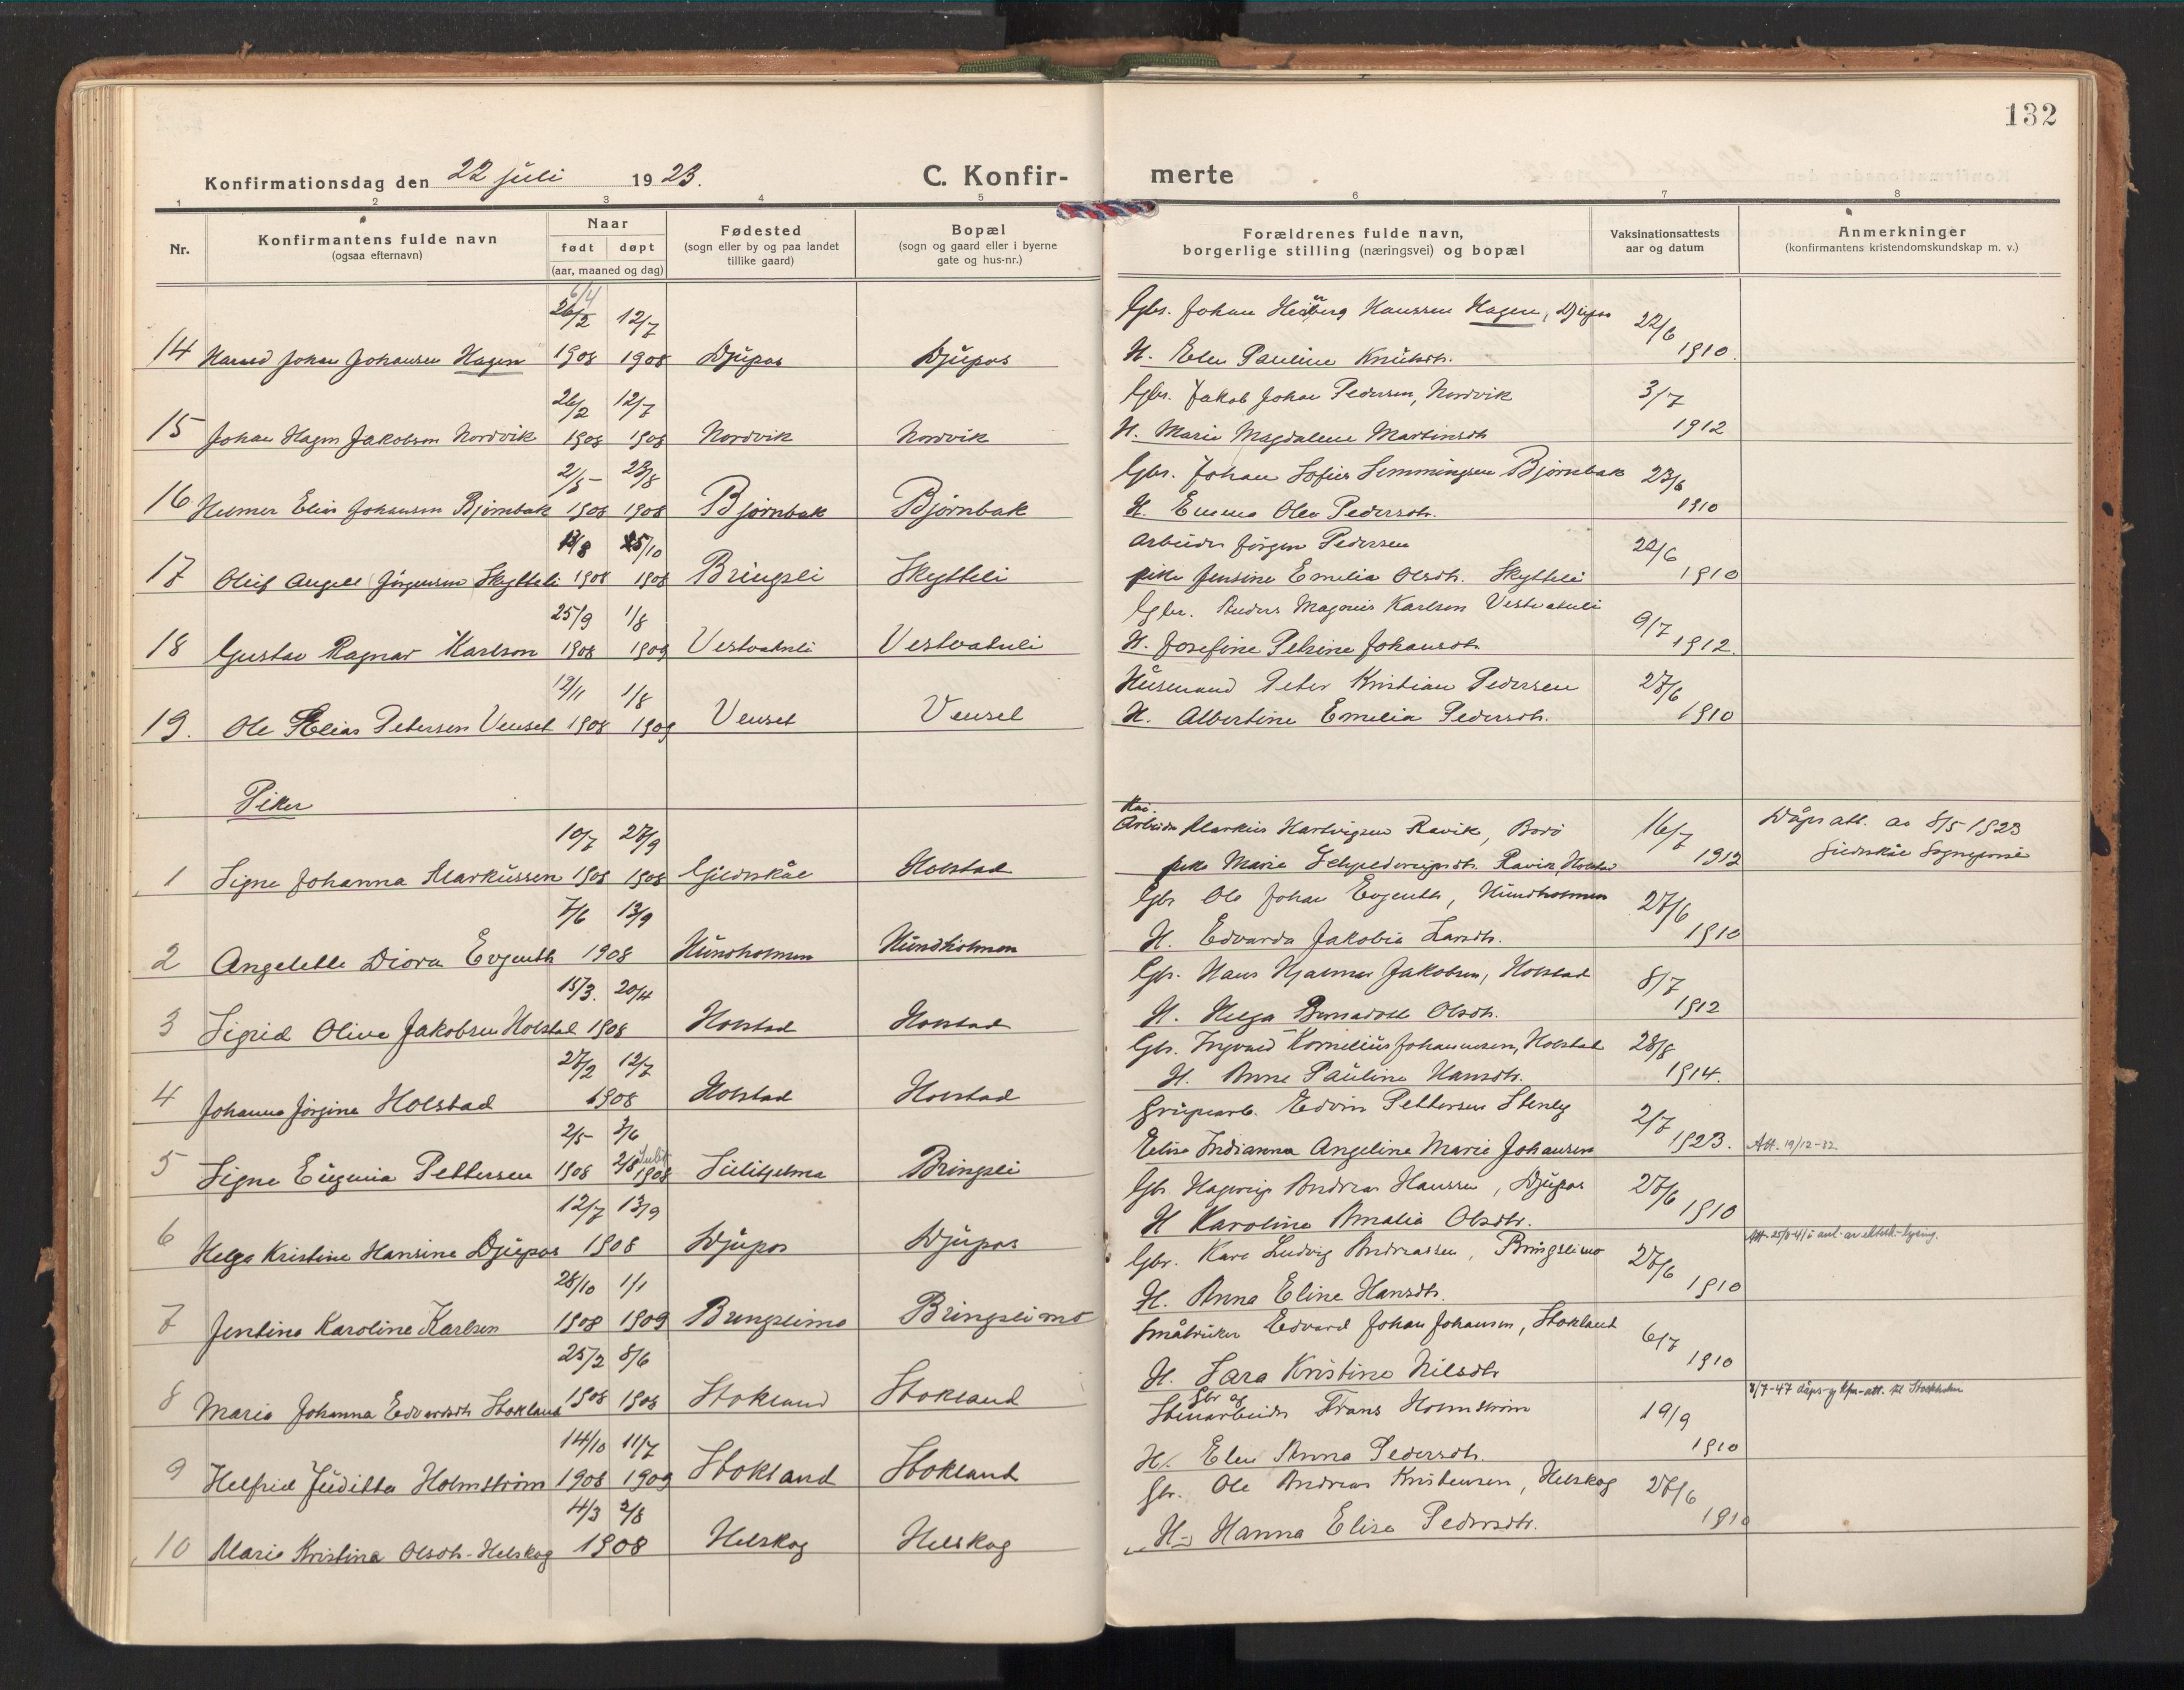 132
Konfirmationsdag den 22 juli 1923.
C. Konfirmerte
1 2 3 4 5 6 7 8
Nr.
Konfirmantens fulde navn
(ogsaa efternavn)
Naar
født døpt
(aar, maaned og dag)
Fødested
(sogn eller by og paa landet
tillike gaard)
Bopæl
(sogn og gaard eller i byerne
gate og hus-nr.)
Forældrenes fulde navn,
borgerlige stilling (næringsvei) og bopæl
Vaksinationsattests
aar og datum
Anmerkninger
(konfirmantens kristendomskundskap m. v.)
6/4
26/2 12/7 Gbr. Johan Hansen Hagen, Djupos 22/6
14 Harald Johan Johansen Hagen 1908 1908 Djupos Djupos H. Elen Pauline Knutsdtr. 1910.
26/2 12/7 Gbr. Jakob Johan Pedersen, Nordvik 3/7
15 Johan Hagen Jakobsen Nordvik 1908 1908 Nordvik Nordvik H. Marie Magdalene Martinsdtr 1912
2/5 23/8 Gbr. Johan Sofus Lemmingsen Bjørnbak 23/6
16 Helmer Elias Johansen Bjørnbak 1908 1908 Bjørnbak Bjørnbak H. Emma Olea Pedersdtr. 1910
/8 25/10 Arbeider Jørgen Pedersen 22/6
17 Oluf Angell Jørgensen Skytteli 1908 1908 Bringsli Skytteli pike Jensine Emelia Olsdtr. Skytteli 1910
25/9 1/8 Gbr. Anders Magnus Karlsen Vestvatnli 9/7
18 Gustav Ragnar Karlson 1908 1909 Vestvatnli Vestvatnli H. Josefine Petrine Johansdtr. 1912.
12/11 1/8 Husmand Peter Kristian Pedersen 27/6
19. Ole Elias Petersen Venset 1908 1909 Venset Venset H. Albertine Emelia Pedersdtr. 1910
Piker
10/7 27/9 Kai-
Arbeider Markus Hartvigsen Ravik, Bodø 16/7 Dåpsatt. av 8/5 1923
1 Signe Johanna Markussen 1908 1908 Gildeskål Holstad pike Marie Ravik, Holstad 1912 Gildeskål Sogneprest
7/6 13/9 Gbr Ole Johan Evjenth, Hundholmen 27/6
2 Angelette Diora Evjenth 1908 Hundholmen Hundholmen H. Edvarda Jakobia Larsdtr. 1910
15/3. 20/4 Gbr. Hans Hjalmar Jakobsen, Holstad 8/7
3 Sigrid Olive Jakobsen Holstad 1908 Holstad Holstad H. Helga Bernadott Olsdtr. 1912
27/2 12/7 Gbr. Ingvald Kornelius Johannesen, Holstad 28/8
4 Johanna Jørgine Holstad 1908 Holstad Holstad H. Anne Pauline Hansdtr. 1914.
2/5 3/6 Grubearb. Edvin Pettersen Stenby 2/7
5 Signe Eugenia Pettersen 1908 2/8 1908 Sulitjelma Bringsli Elise Indianna Angeline Marie Johansen 1923. Att. 19/12-32
12/7 13/9 Gbr Hagerup Andreas Hansen, Djupos 27/6
6 Helga Kristine Hansine Djupos 1908 Djupos Djupos H Karoline Amalia Olsdtr. 1910
28/10 1/1 Gbr. Karl Ludvig Andreassen, Bringslimo 27/6 Att. 25/8-41 i anl. av ektesk.-lysing.
7 Jentine Karoline Karlsen 1908 1909 Bringslimo Bringslimo H. Anna Eline Hansdtr. 1910
25/2 8/6 Småbruker Edvard Johan Johansen, Stokland 6/7
8 Marie Johanna Edvardsdtr Stokland 1908 1908 Stokland Stokland H. Sara Kristine Nilsdtr 1910
14/10 11/7 Gbr og
Stenarbeider Frans Holmstrøm 19/9 3/7-47 dåps- og kfm-att. til Stockholm
9 Helfrid Juditta Holmstrøm 1908 1909 Stokland Stokland H. Elen Anna Pedersdtr. 1910
4/3 2/8 Gbr. Ole Andreas Kristensen, Helskog 27/6
10 Marie Kristina Olsdtr. Helskog 1908 Helskog Helskog H. Hanna Elise Pedersdtr. 1910